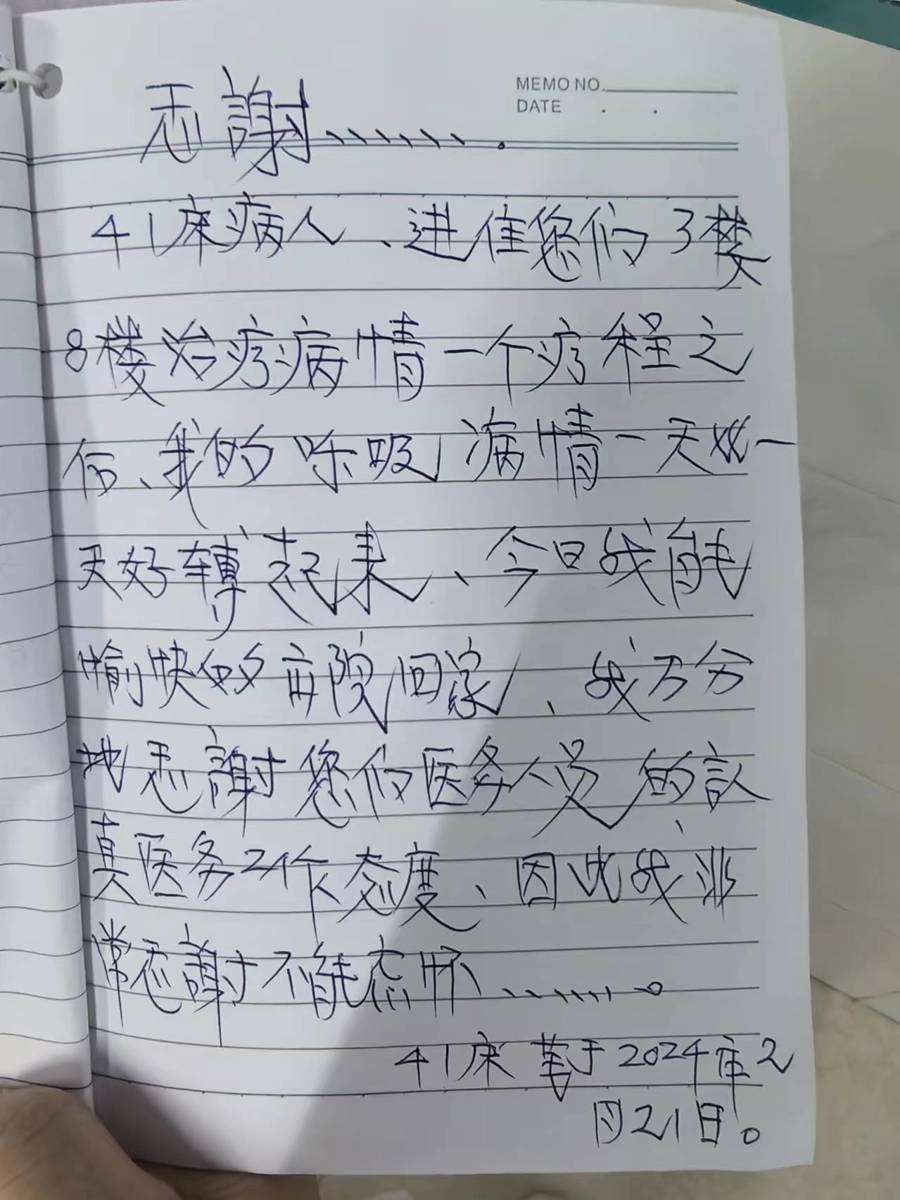 MEMO NO.
DATE . .
忎謝、、、、、、。
41床病人、进住您们3楼
8楼治疗病情一个疗程之
后、我的呼吸病情一天比一
天好转起来、今日我能
愉快的出院回家、我万分
地忎謝您们医务人员的認
真医务工作态度、因此我非
常忎謝不能忘怀、、、、、、。
41床 笔于2024年2
月21日。